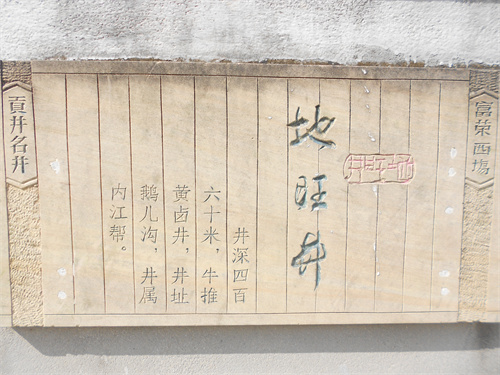 富荣西場
地旺井
井深四百
六十米，牛推
黄卤井，井址
鹅儿沟，井属
内江帮。
貢井名井